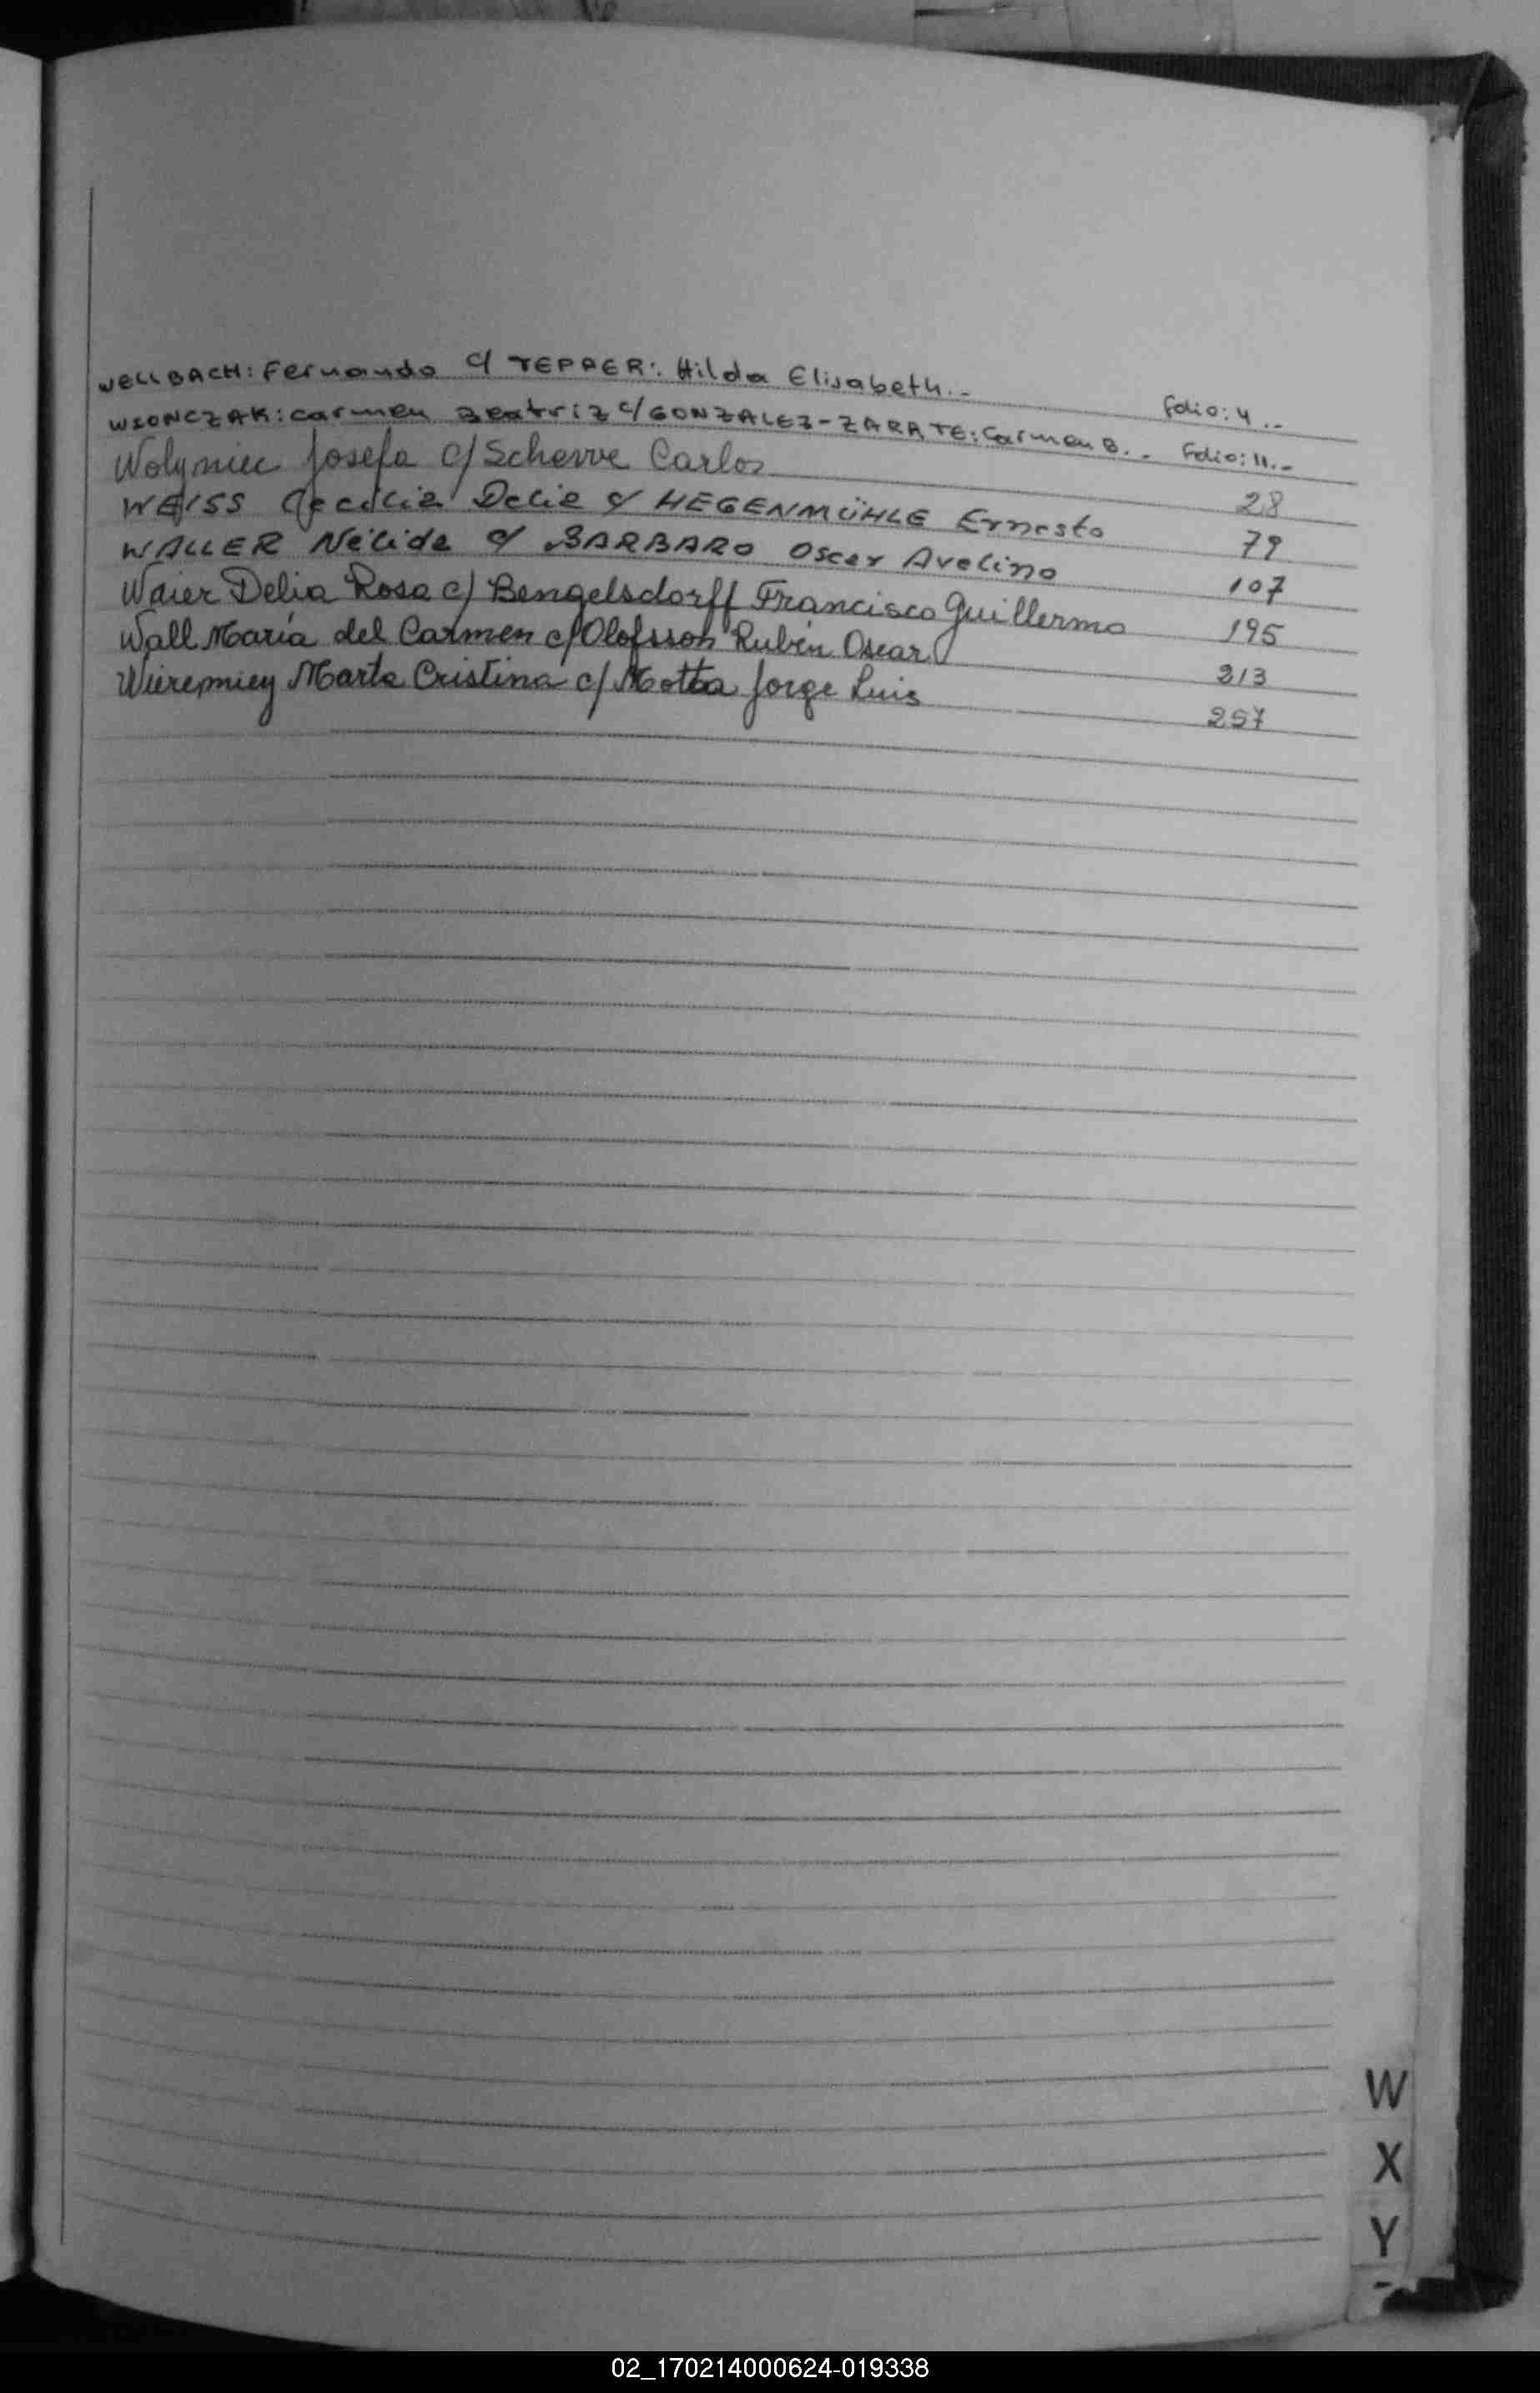 WELLBACH: Fernando c/ TEPPER: Hilda Elisabeth.- Folio: 4.-
WSONCZAK: Carmen Beatriz c/ GONZALEZ-ZARATE: Carmen B.- Folio: 11.-
Wolyniec Josefa c/ Scherve Carlos 28
WEISS Cecilia Delia c/ HEGENMÜHLE Ernesto 79
WALLER Nélida c/ BARBARO Oscar Avelino 107
Waier Delia Rosa c/ Bengelsdorff Francisco Guillermo 195
Wall María del Carmen c/ Olofsson Rubén Oscar 213
Wieremiey Marta Cristina c/ Motta Jorge Luis 257
W
X
Y
02_170214000624-019338